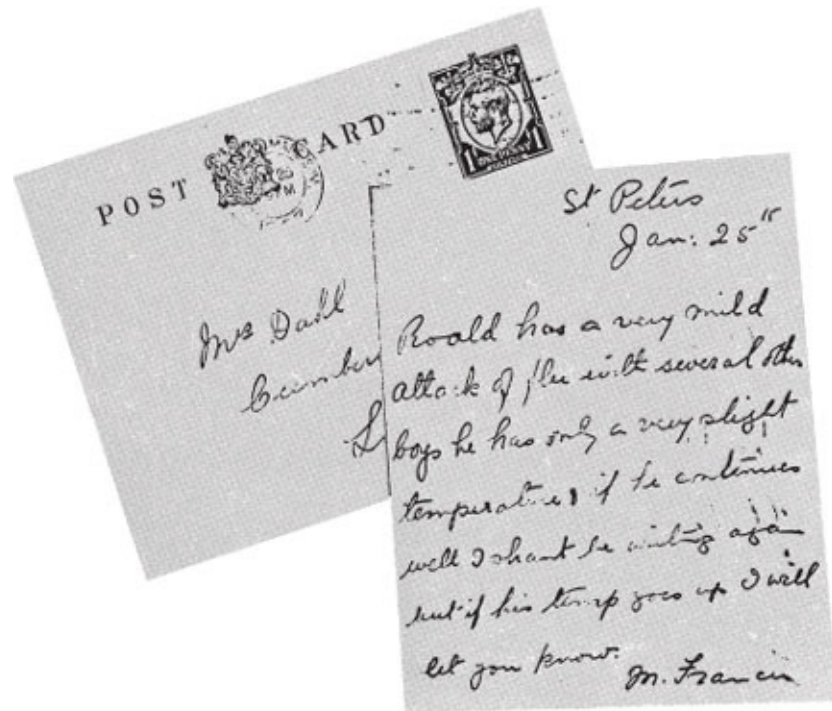 POST CARD
1 ONE PENNY 1
Mrs Dahl
St Peters
Jan: 25th
Roald has a very mild
attack of flu with several other
boys he has only a very slight
temperature, if he continues
well I shant be writing again
but if his temp goes up I will
let you know.
M. Francis